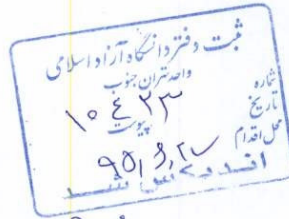 ثبت دفتر دانشگاه آزاد اسلامی
واحد تهران جنوب
شماره ۱۰۴۲۳
تاریخ
پیوست
محل اقدام
اندیکس شد